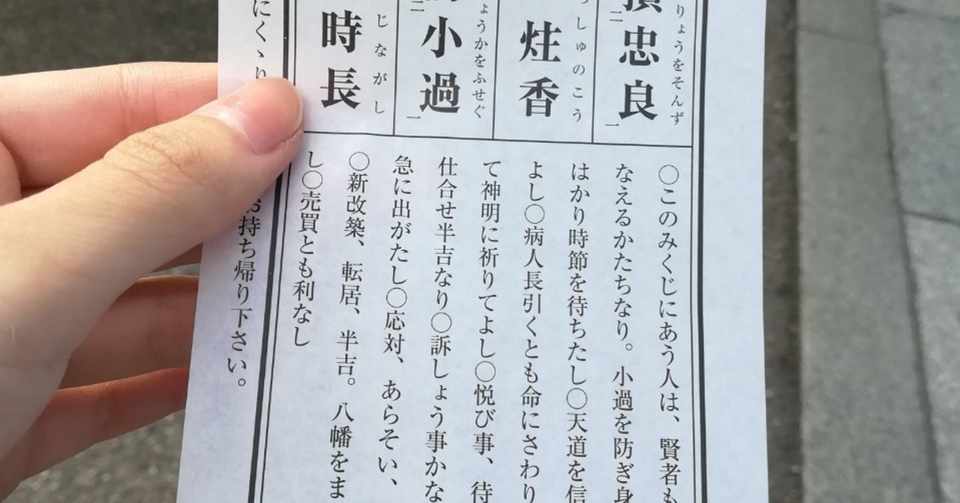 りょうをそんず
損二忠良一
っしゅのこう
炷香
ょうかをふせぐ
二小過一
じながし
時長
〇このみくじにあう人は、賢者も
なえるかたちなり。小過を防ぎ身
はかり時節を待ちたし〇天道を信
よし〇病人長引くとも命にさわり
て神明に祈りてよし〇悦び事、待
仕合せ半吉なり〇訴しょう事かな
急に出がたし〇応対、あらそい、
〇新改築、転居、半吉。八幡をま
し〇売買とも利なし
にくゝり
お持ち帰り下さい。